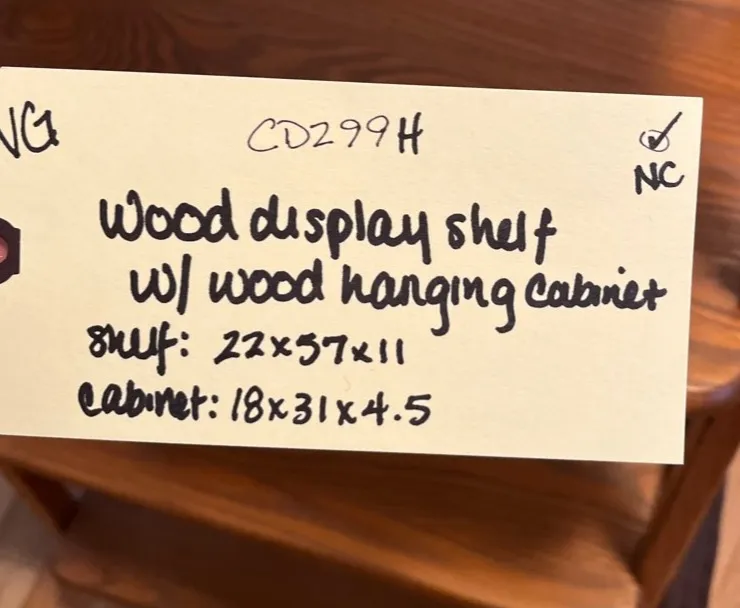 VG
CD299H
NC
Wood display shelf
w/ wood hanging cabinet
shelf: 22x57x11
cabinet: 18x31x4.5